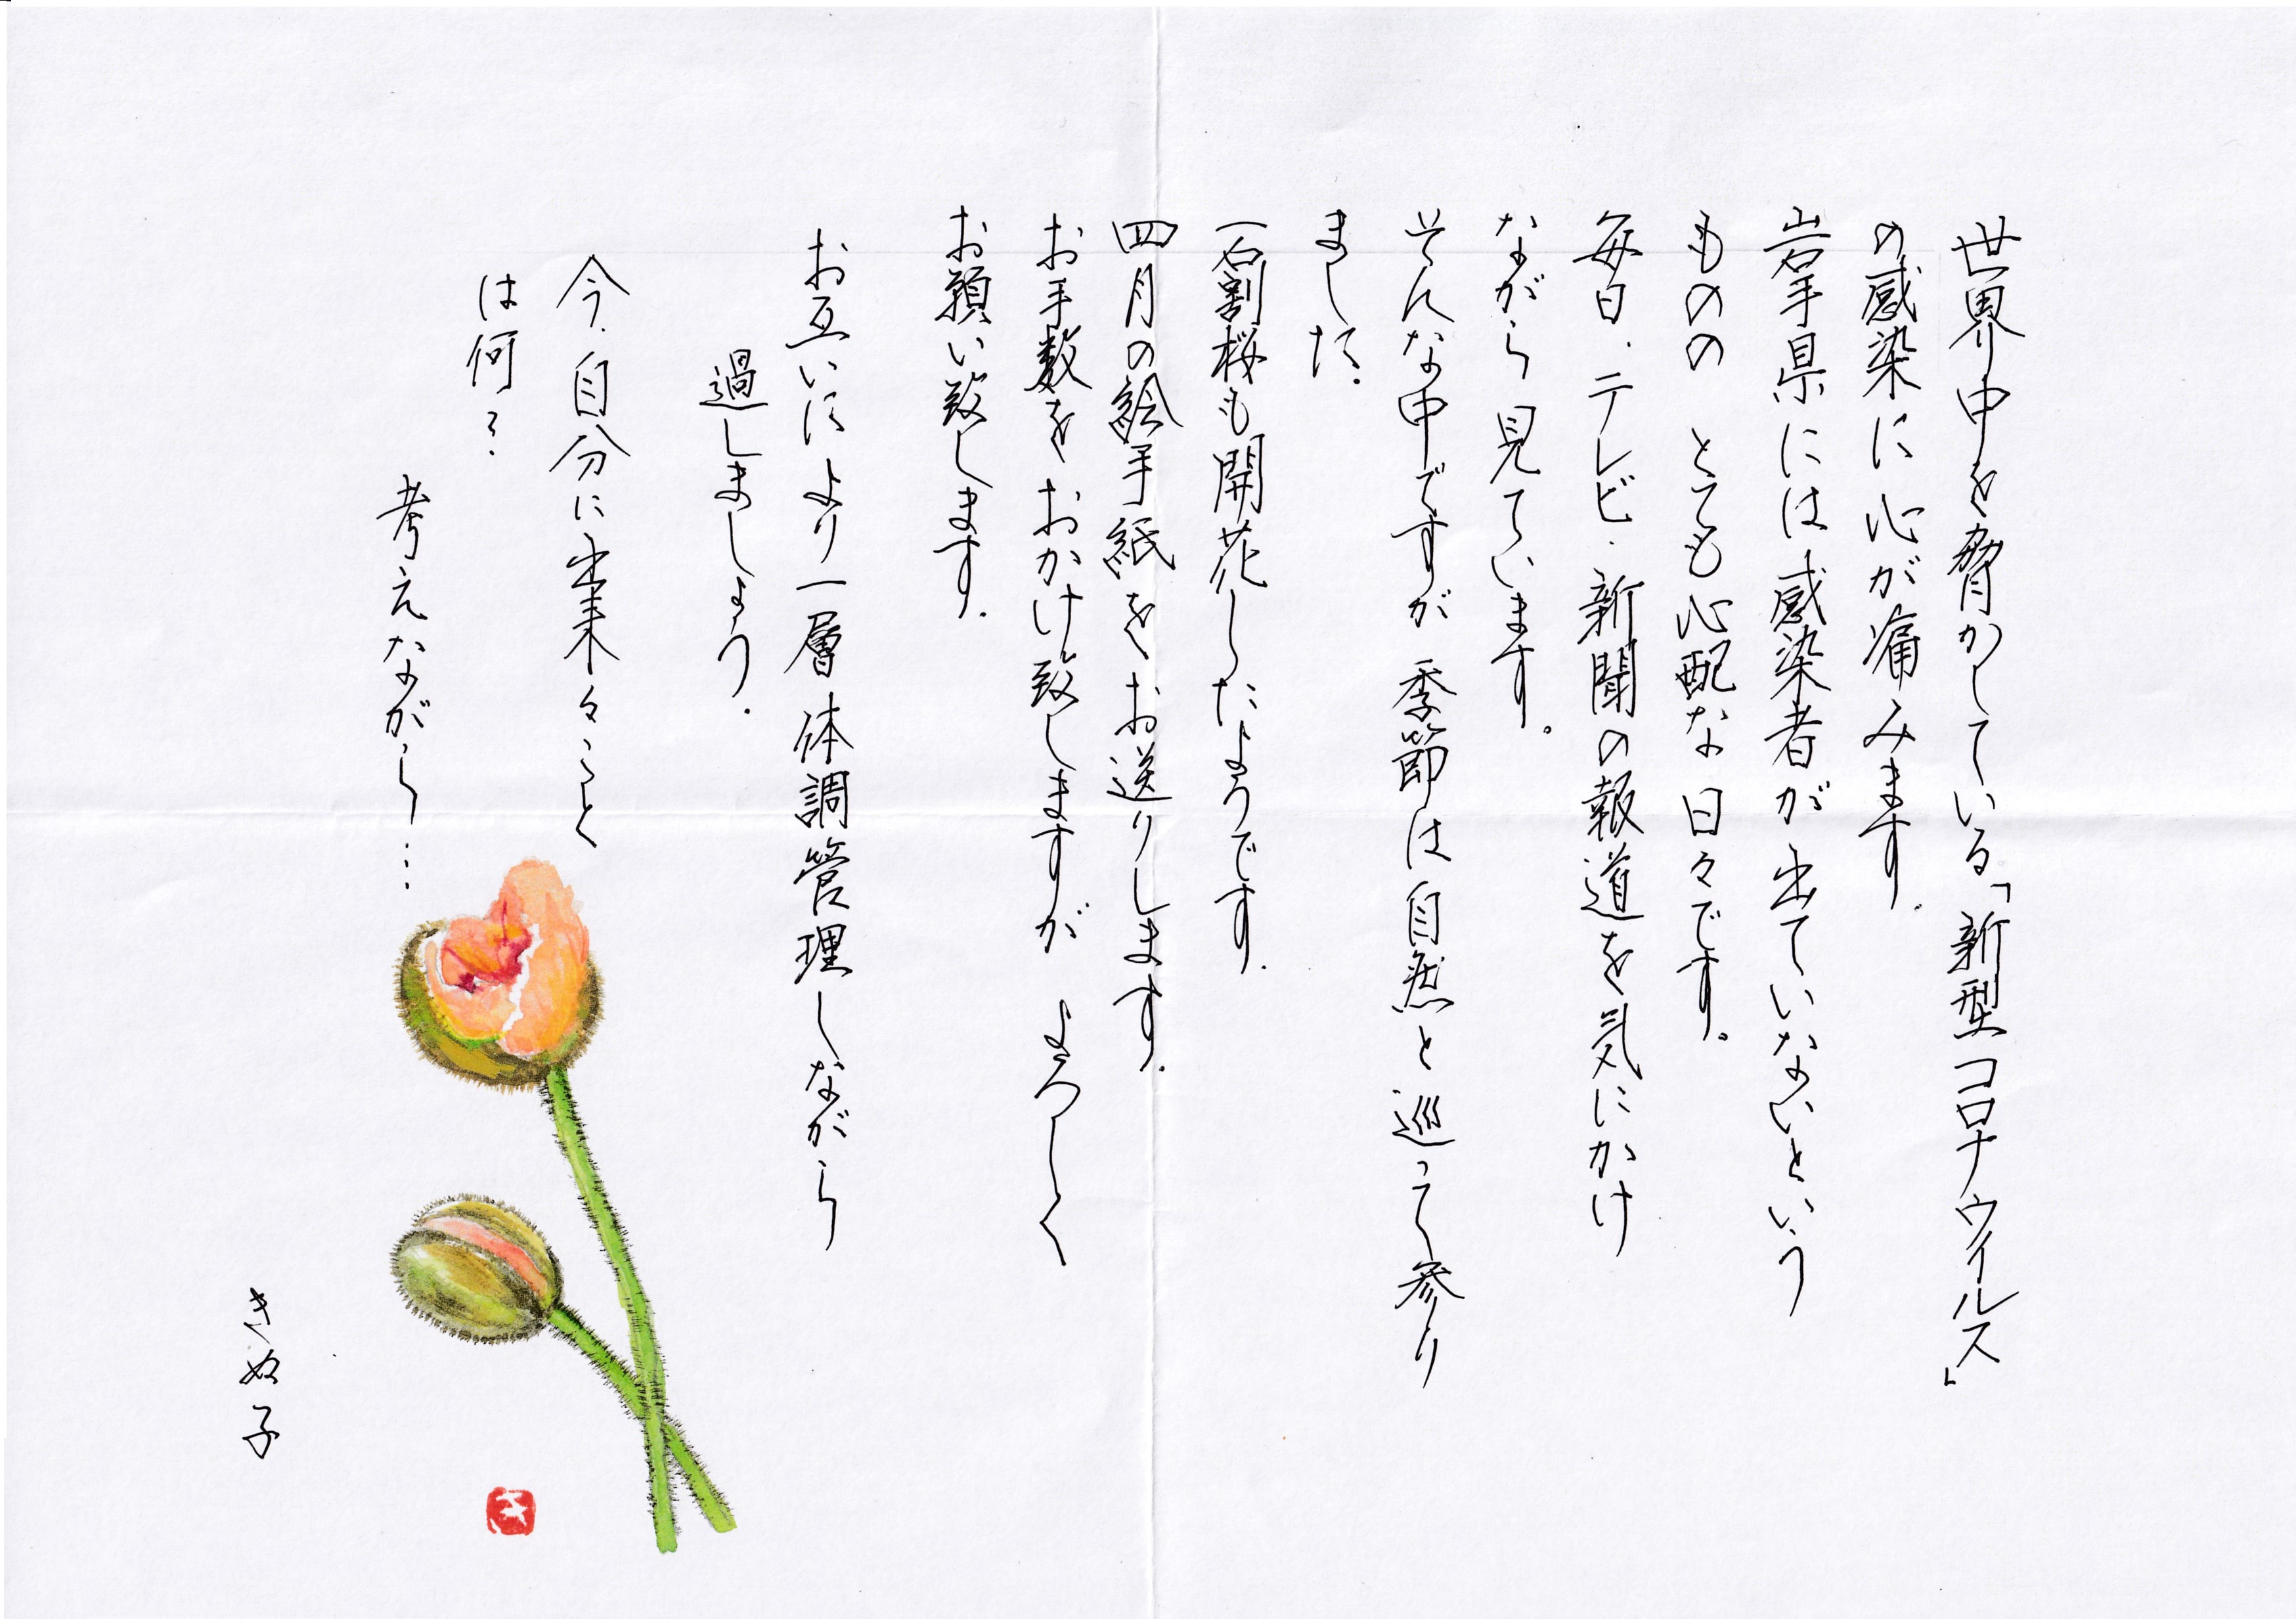 世界中を脅かしている「新型コロナウイルス」
の感染に心が痛みます.
岩手県には感染者が出ていないという
ものの とても心配な日々です。
毎日.テレビ.新聞の報道を気にかけ
ながら見ています。
そんな中ですが 季節は自然と巡って参り
ました.
石割桜も開花したようです.
四月の絵手紙をお送りします.
お手数をおかけ致しますが よろしく
お願い致します.
お互いにより一層体調管理しながら
過しましょう.
今.自分に出来ること
は何?
考えながら…
きぬ子
き